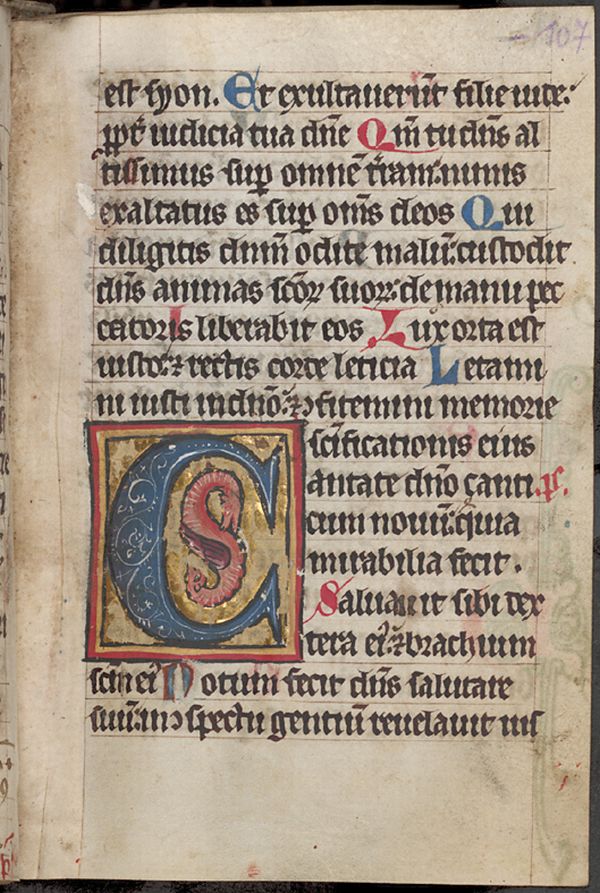 107
est syon. Et exultauerūt filie iude:
ꝓpt̄ iudicia tua dn̄e Qm̄ tu dn̄s al
tissimus sup̄ omnē t̄ram: nimis
exaltatus es sup̄ om̄s deos Qui
diligitis dnm̄ odite malū: custodit
dn̄s animas sc̄oꝝ suoꝝ: de manu pec
catoris liberabit eos Lux orta est
iusto: ⁊ rectis corde leticia Letami
ni iusti in dn̄o: ⁊ ↄfitemini memorie
sc̄ificationis eius
Cantate dn̄o canti ps.
cum nouū: quia
mirabilia fecit.
Saluauit sibi dex
tera eiꝰ: ⁊ brachium
sc̄m eiꝰ Notum fecit dn̄s salutare
suū: in ↄspectu gentiū reuelauit ius